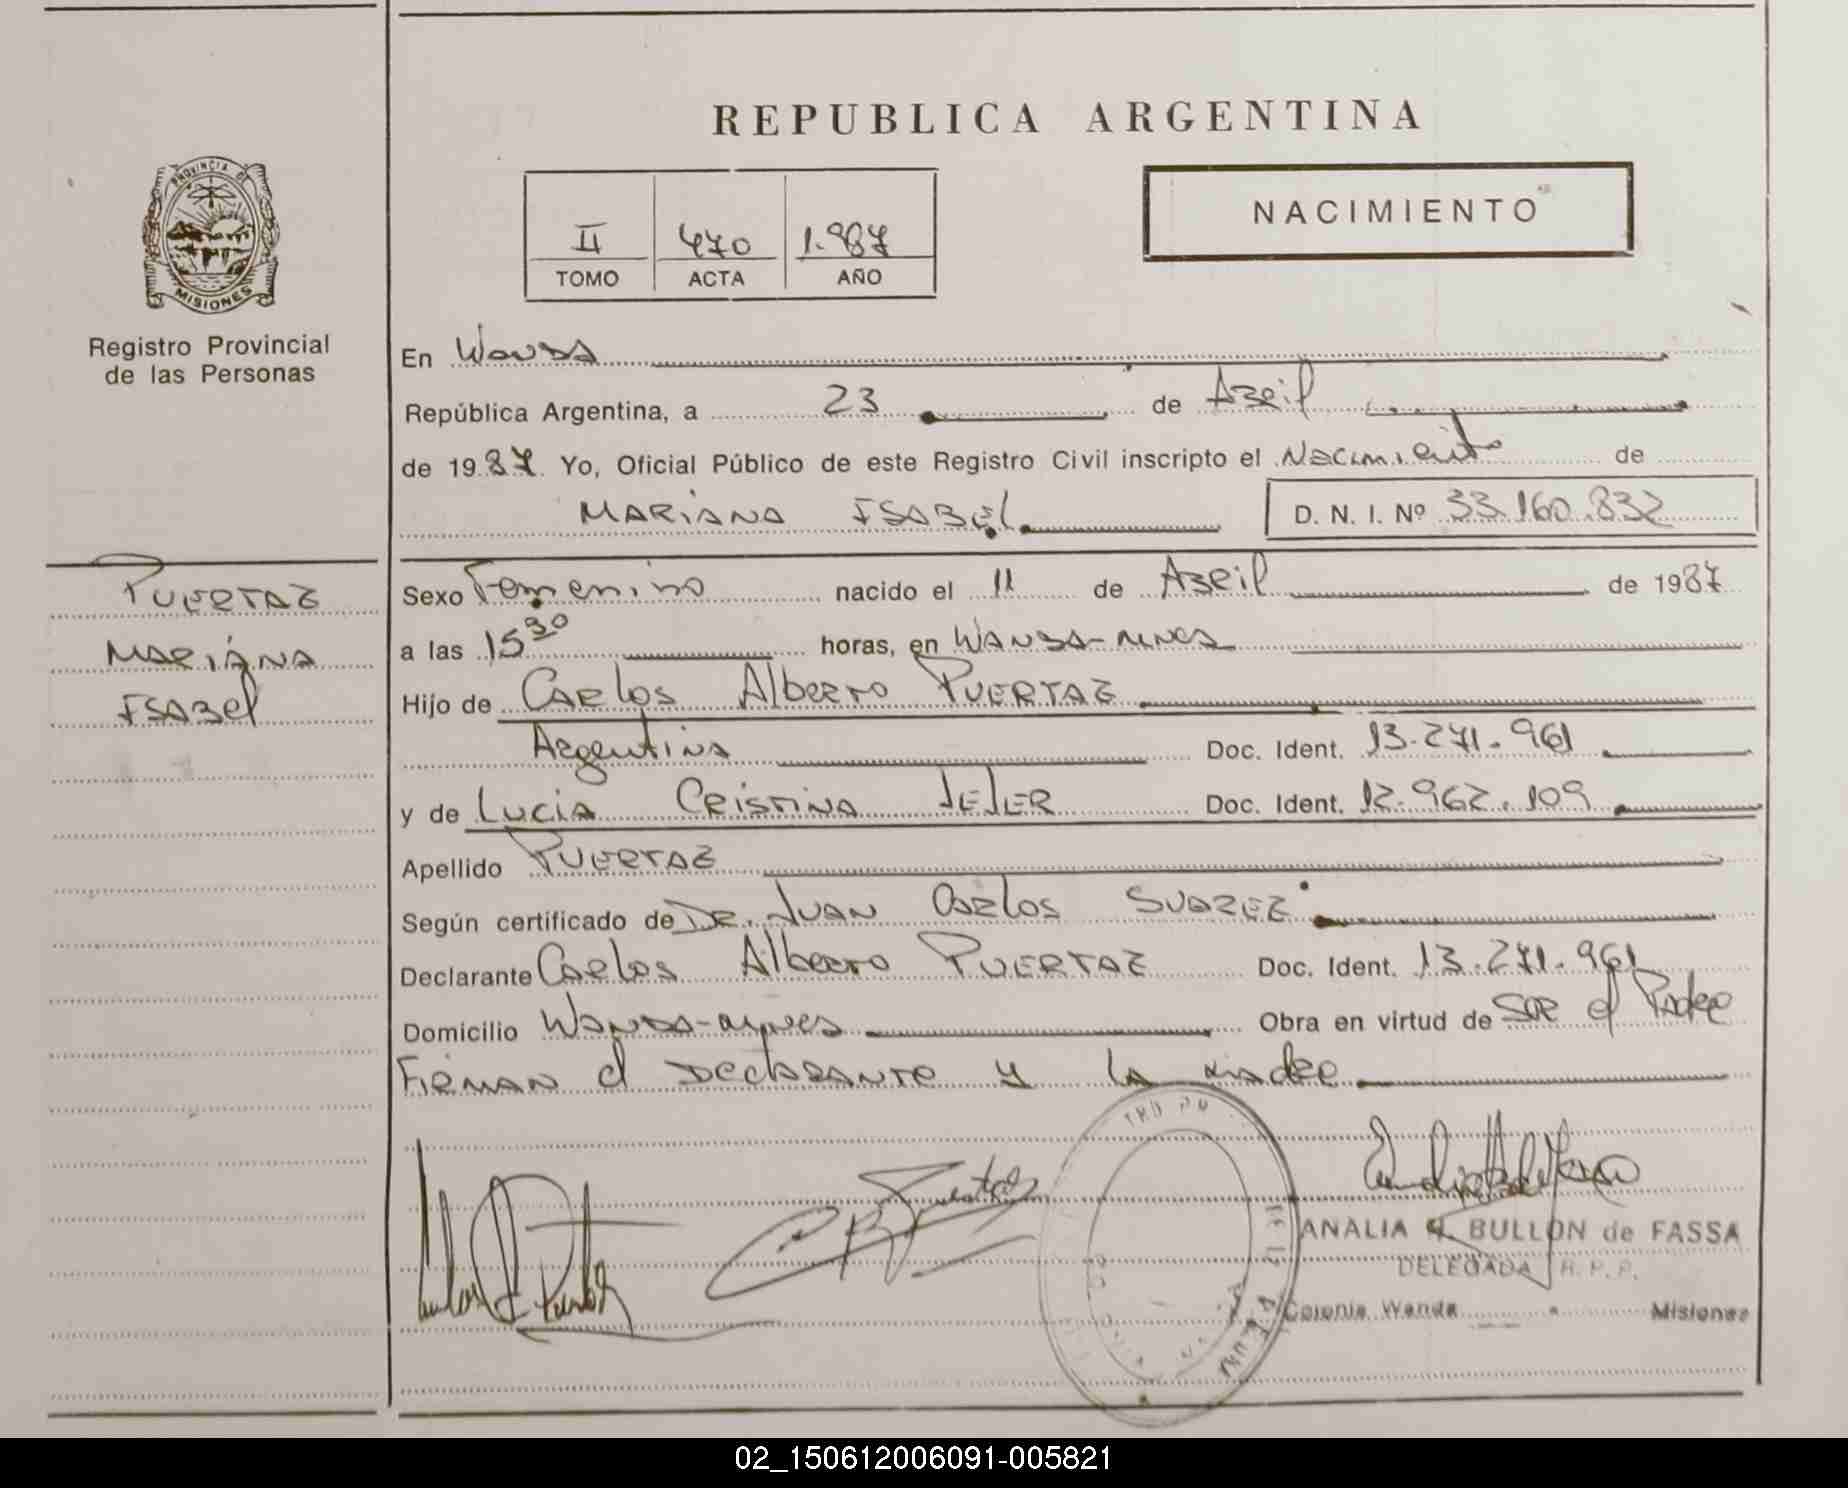 REPUBLICA ARGENTINA
PROVINCIA DE
MISIONES
Registro Provincial
de las Personas
II 470 1.987
TOMO ACTA AÑO
NACIMIENTO
En Wanda
República Argentina, a 23 de Abril
de 1987. Yo, Oficial Público de este Registro Civil inscripto el Nacimiento de
MARIANA ISABEL D. N. I. Nº 33.160.832
PUERTAS
MARIANA
ISABEL
Sexo Femenino nacido el 11 de Abril de 1987
a las 15 30 horas, en WANDA-MNES
Hijo de CARLOS Alberto PUERTAS
Argentina Doc. Ident. 13.271.961
y de LUCIA CRISTINA Doc. Ident. 12.962.109
Apellido PUERTAS
Según certificado de DR. JUAN CARLOS SUAREZ
Declarante CARLOS Alberto PUERTAS Doc. Ident. 13.271.961
Domicilio WANDA-MNES Obra en virtud de SER el Padre
FIRMAN el DECLARANTE y LA MADRE
ANALIA H. BULLON de FASSA
DELEGADA R. P. P.
Colonia Wanda Misiones
02_150612006091-005821